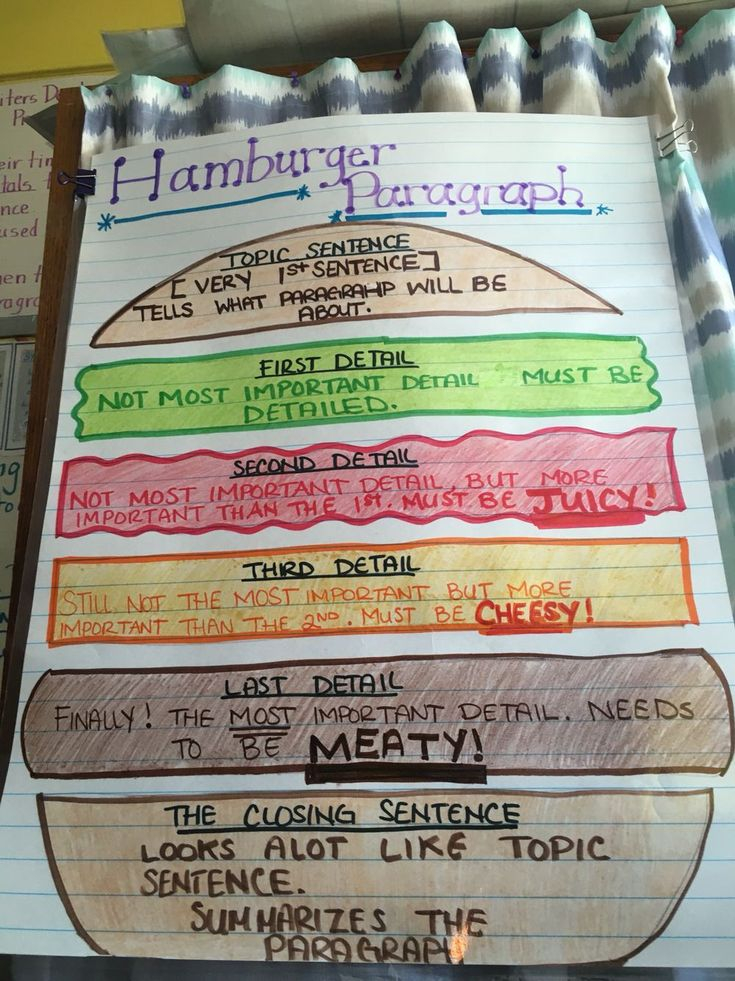 iters D
P
eir tim
tals t
nce
used
en t
ragra
Hamburger
Paragraph
TOPIC SENTENCE
[VERY 1st SENTENCE]
TELLS WHAT PARAGRAHP WILL BE
ABOUT.
FIRST DETAIL
NOT MOST IMPORTANT DETAIL MUST BE
DETAILED.
SECOND DETAIL
NOT MOST IMPORTANT DETAIL, BUT MORE
IMPORTANT THAN THE 1st. MUST BE JUICY!
THIRD DETAIL
STILL NOT THE MOST IMPORTANT BUT MORE
IMPORTANT THAN THE 2ND. MUST BE CHEESY!
LAST DETAIL
FINALLY! THE MOST IMPORTANT DETAIL. NEEDS
TO BE MEATY!
THE CLOSING SENTENCE
LOOKS ALOT LIKE TOPIC
SENTENCE.
SUMMARIZES THE
PARAGRAPH